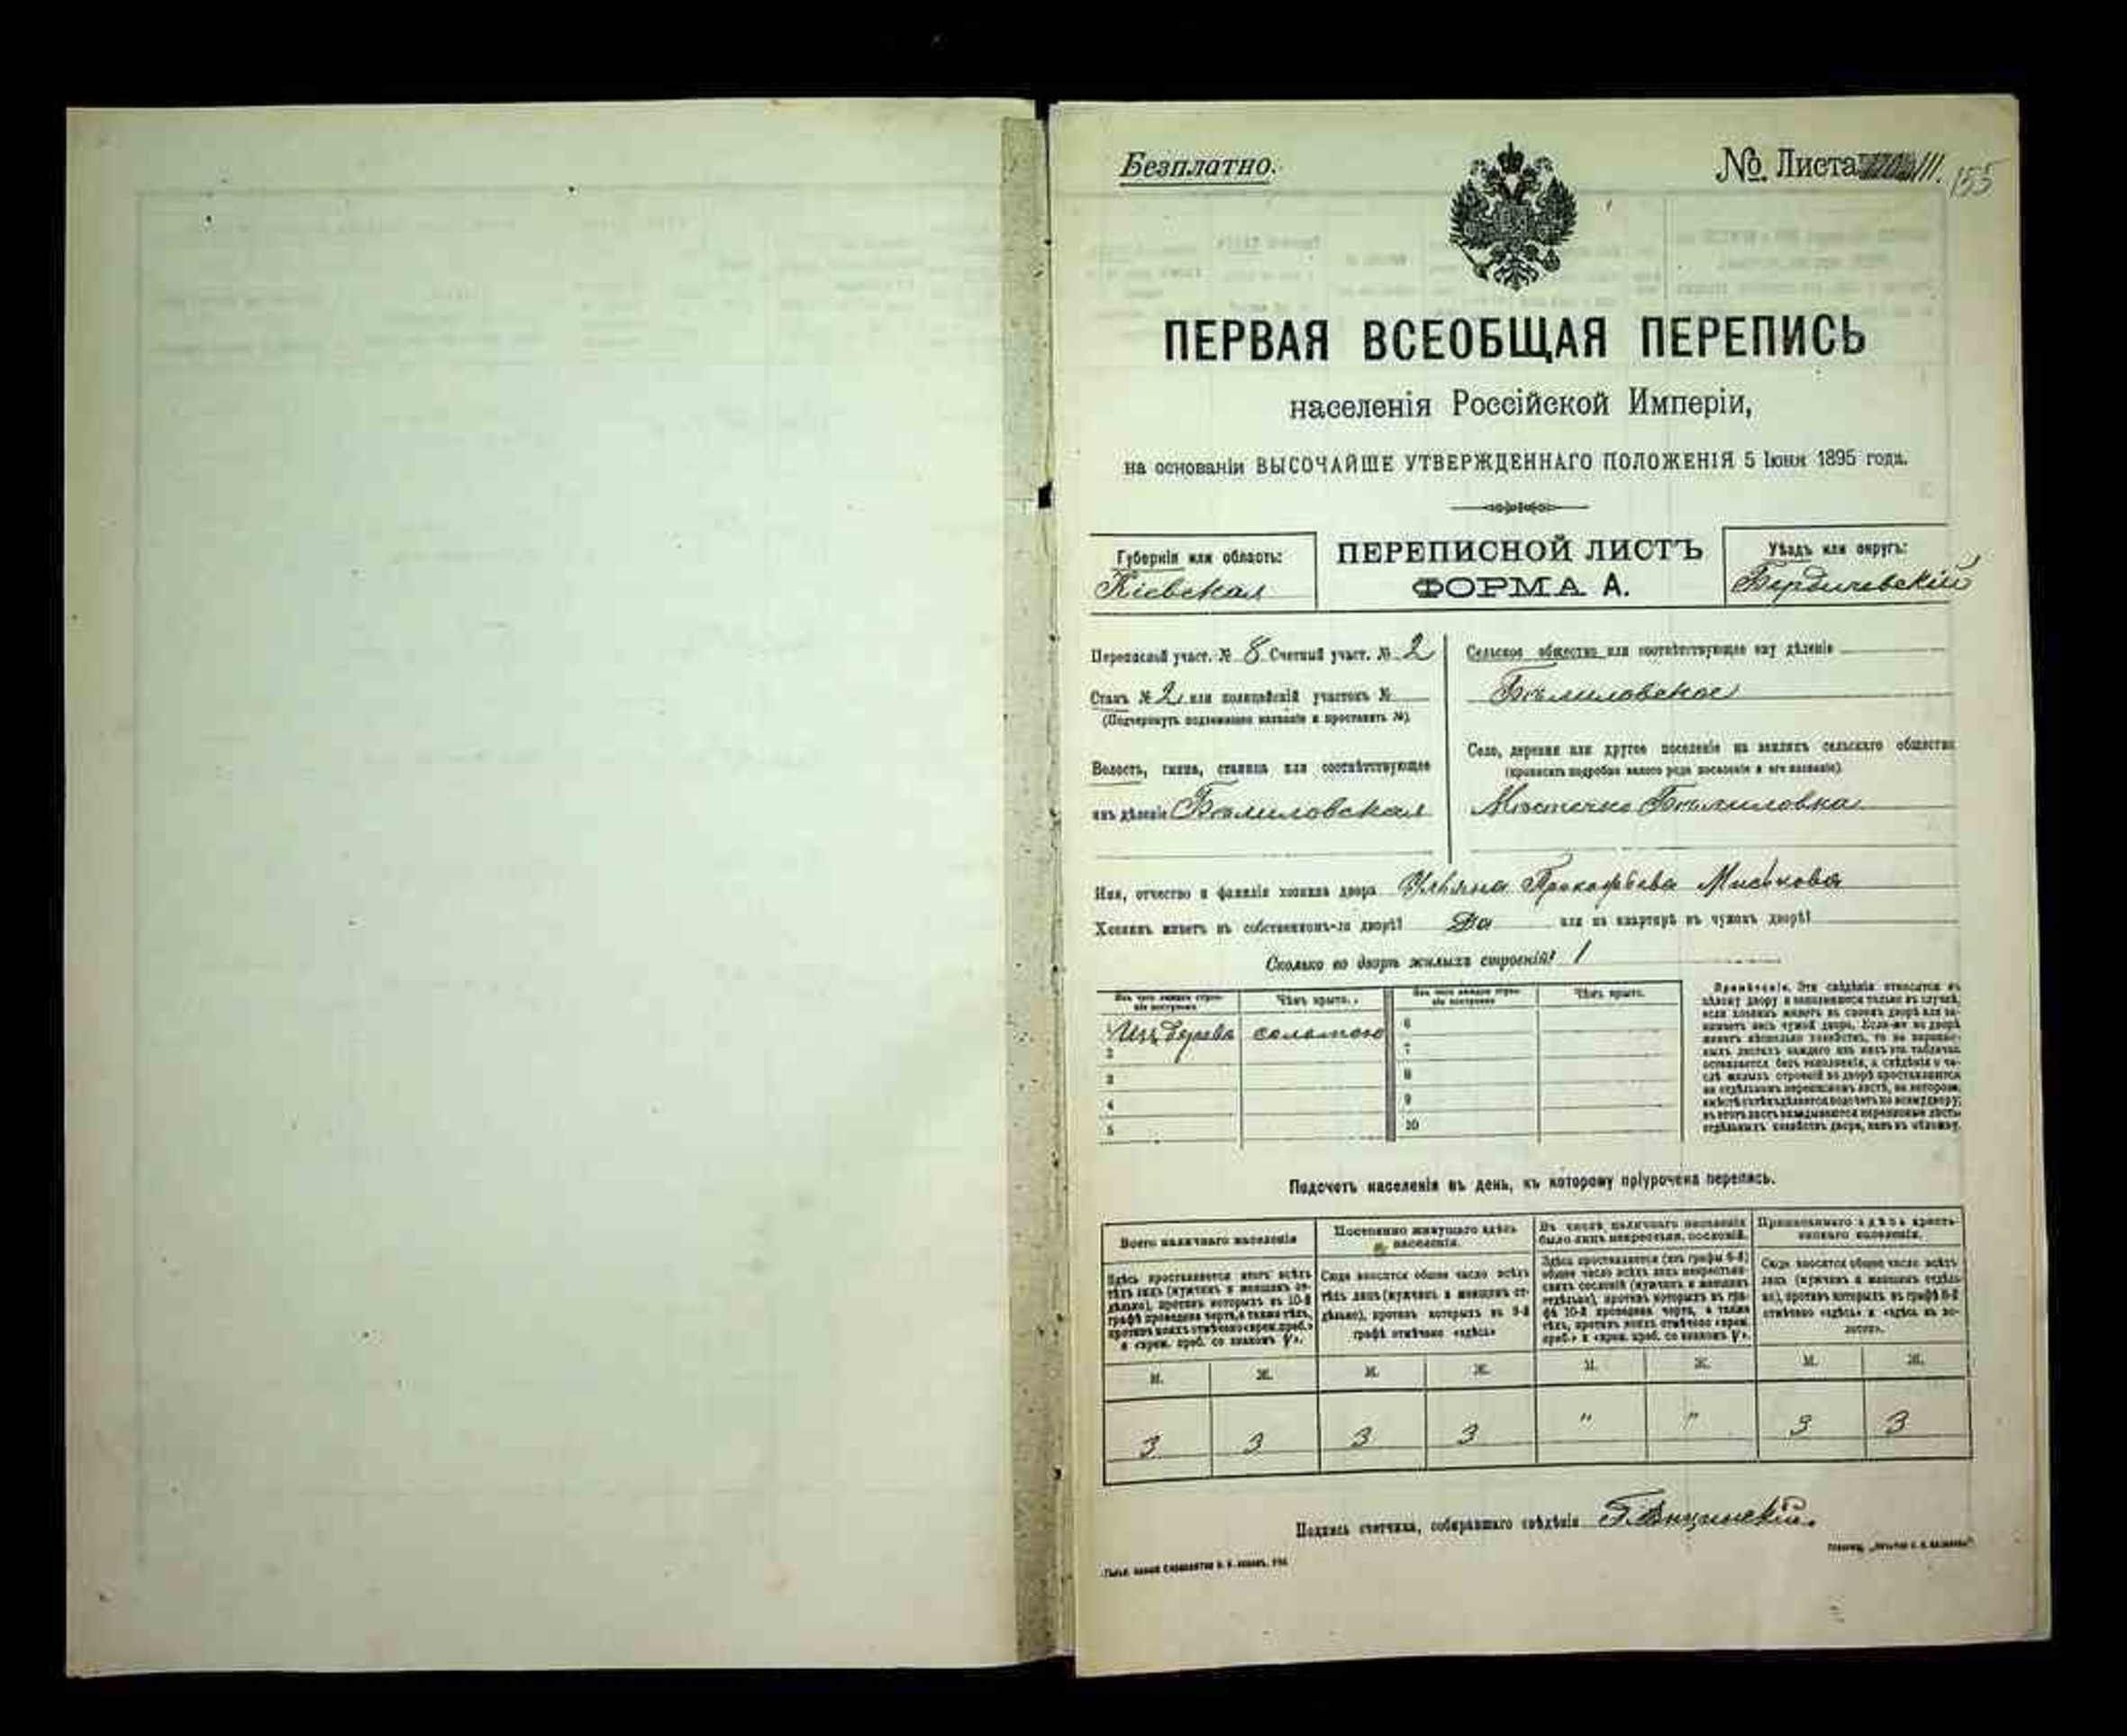 Безплатно.
№ Листа 111.
155
ПЕРВАЯ ВСЕОБЩАЯ ПЕРЕПИСЬ
населенія Россійской Имперіи,
на основаніи ВЫСОЧАЙШЕ УТВЕРЖДЕННАГО ПОЛОЖЕНІЯ 5 Іюня 1895 года.
Губернія или область:
Кіевская
ПЕРЕПИСНОЙ ЛИСТЪ
ФОРМА А.
Уѣздъ или округъ:
Бердичевскій
Переписной участ. № 8 Счетный участ. № 2
Станъ № 2 или полицейскій участокъ №
(Подчеркнуть подлежащее названіе и проставить №).
Волость, гмина, станица или соотвѣтствующее
имъ дѣленіе Бѣлиловская
Сельское общество или соотвѣтствующее ему дѣленіе
Бѣлиловское
Село, деревня или другое поселеніе на земляхъ сельскаго общества
(прописать подробно какого рода поселеніе и его названіе).
Мѣстечко Бѣлиловка
Имя, отчество и фамилія хозяина двора Ульяна Прокофьева
Хозяинъ живетъ въ собственномъ-ли дворѣ? Да или на квартирѣ въ чужомъ дворѣ?
Сколько во дворѣ жилыхъ строеній? 1
Изъ чего каждое строеніе построено
Чѣмъ крыто.
Изъ чего каждое строеніе построено
Чѣмъ крыто.
Изъ дерева соломою
2
3
4
5
6
7
8
9
10
Примѣчаніе. Эти свѣдѣнія относятся къ
цѣлому двору и заполняются только въ случаѣ,
если хозяинъ живетъ въ своемъ дворѣ или за-
нимаетъ весь чужой дворъ. Если-же во дворѣ
живетъ нѣсколько хозяйствъ, то на перепис-
ныхъ листахъ каждаго изъ нихъ эта табличка
оставляется безъ заполненія, а свѣдѣнія о чи-
слѣ жилыхъ строеній во дворѣ проставляются
на отдѣльномъ переписномъ листѣ, на которомъ,
вмѣстѣ съ тѣмъ дѣлается подсчетъ по всему двору;
въ этотъ листъ вкладываются переписные листы
отдѣльныхъ хозяйствъ двора, какъ въ обложку.
Подсчетъ населенія въ день, къ которому пріурочена перепись.
Всего наличнаго населенія
Здѣсь проставляется итогъ всѣхъ
тѣхъ лицъ (мужчинъ и женщинъ от-
дѣльно), противъ которыхъ въ 10-й
графѣ проведена черта, а также тѣхъ,
противъ коихъ отмѣчено «врем. преб.»
и «врем. преб. со знакомъ V».
Постоянно живущаго здѣсь
населенія.
Сюда вносится общее число всѣхъ
тѣхъ лицъ (мужчинъ и женщинъ от-
дѣльно), противъ которыхъ въ 9-й
графѣ отмѣчено «здѣсь»
Въ числѣ наличнаго населенія
было лицъ некрестьян. сословій.
Здѣсь проставляется (изъ графы 6-й)
общее число всѣхъ лицъ некрестьян-
скихъ сословій (мужчинъ и женщинъ
отдѣльно), противъ которыхъ въ гра-
фѣ 10-й проведена черта, а также
тѣхъ, противъ коихъ отмѣчено «врем.
преб.» и «врем. преб. со знакомъ V».
Приписаннаго здѣсь кресть-
янскаго населенія.
Сюда вносится общее число всѣхъ
лицъ (мужчинъ и женщинъ отдѣль-
но), противъ которыхъ въ графѣ 8-й
отмѣчено «здѣсь» и «здѣсь въ во-
лости».
М. Ж. М. Ж. М. Ж. М. Ж.
3 3 3 3 " " 3 3
Подпись счетчика, собиравшаго свѣдѣнія